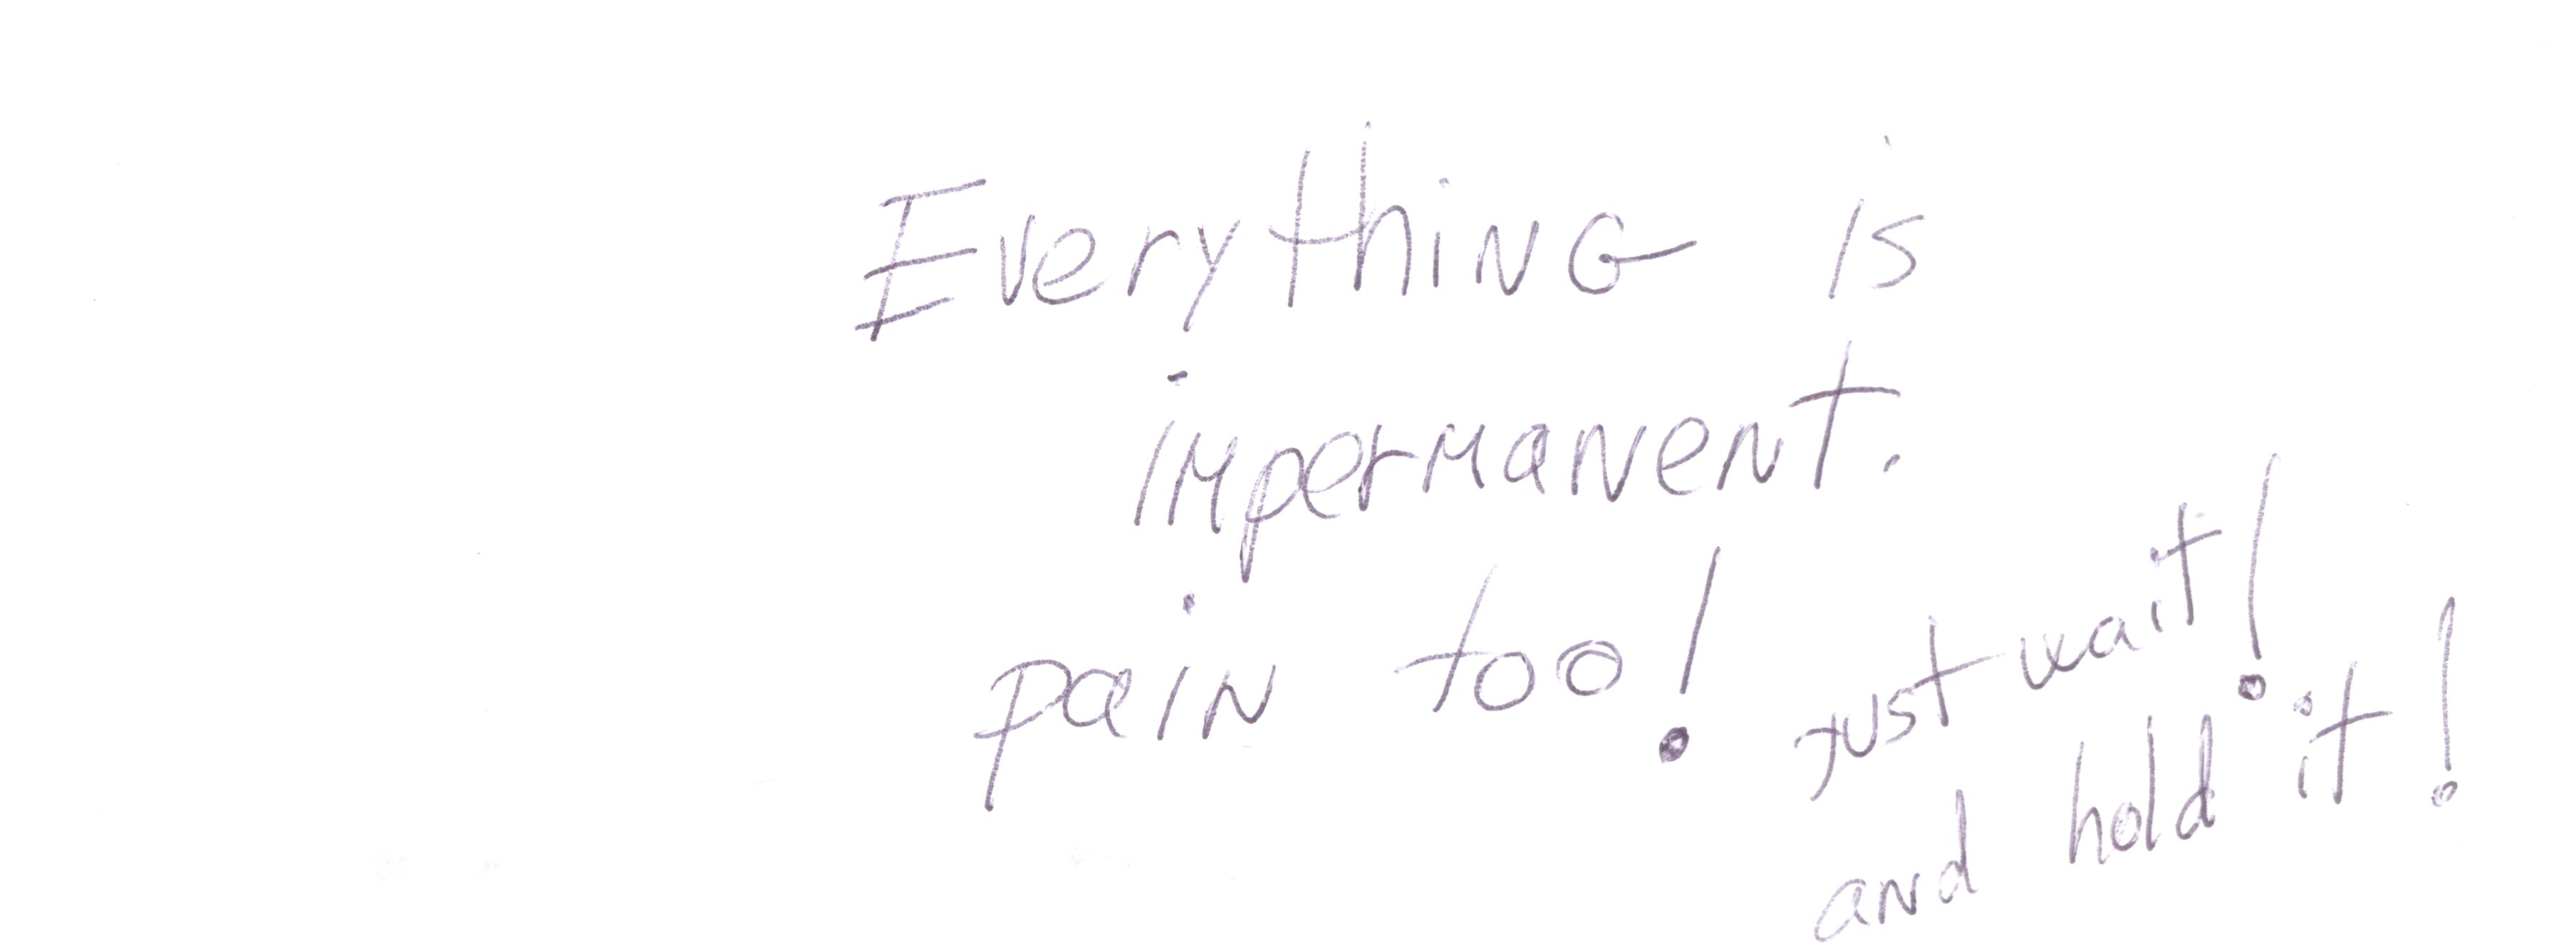 Everything is
impermanent.
pain too!
just wait!
and hold it!